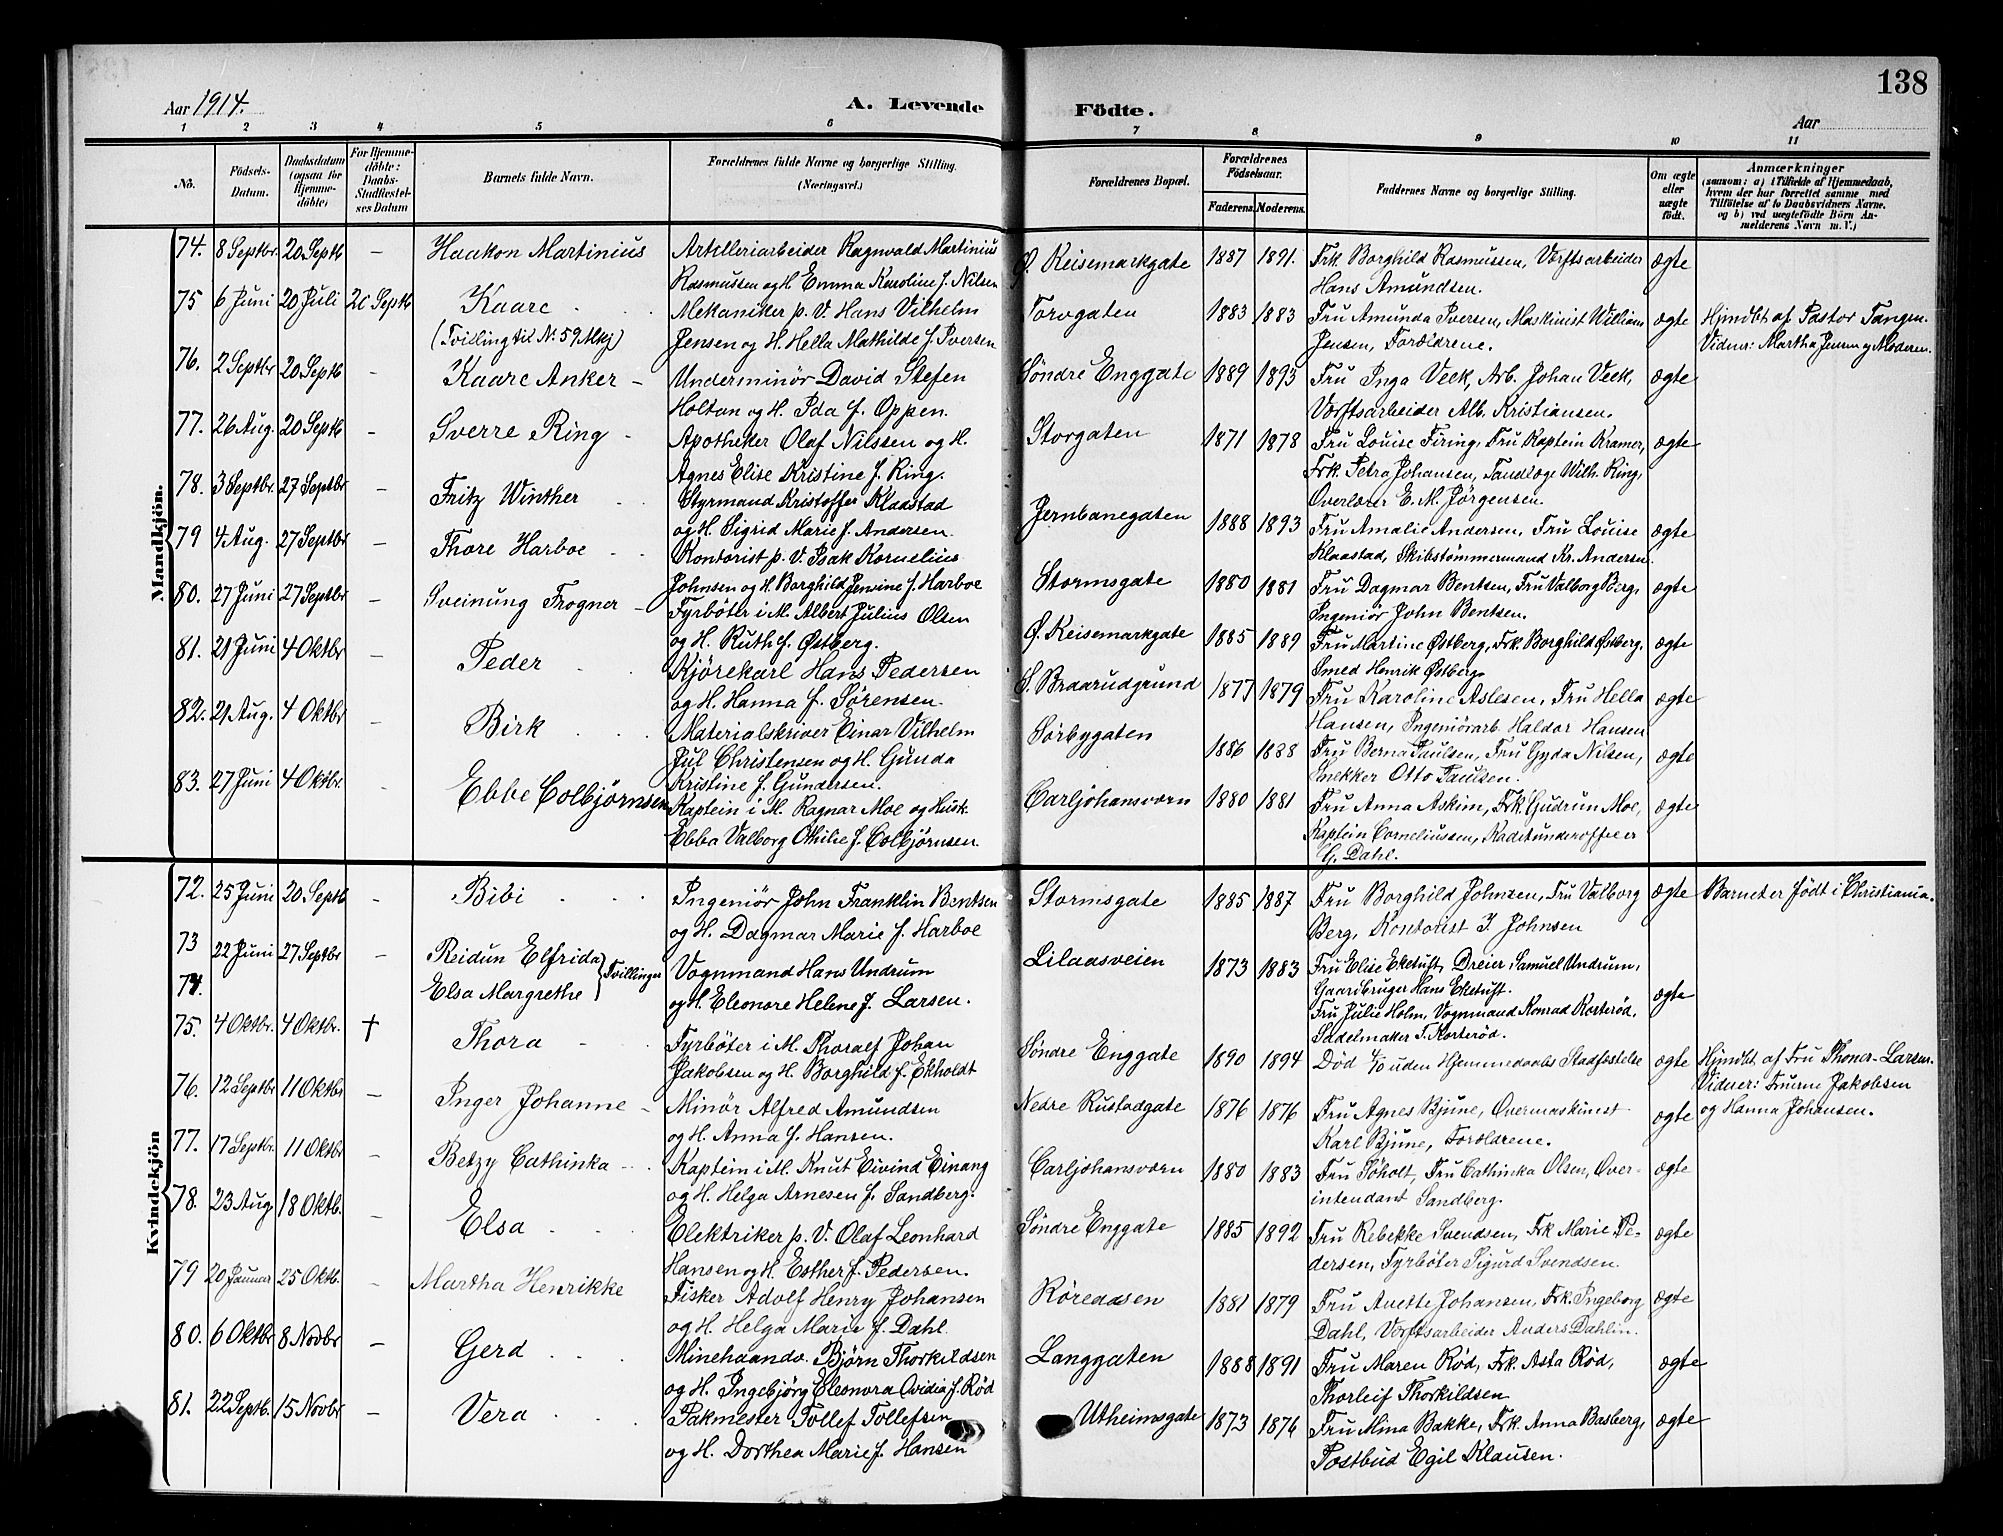 138
Aar 1914.
A. Levende Födte.
Aar
1 2 3 4 5 6 7 8 9 10 11
No.
Födsels-Datum.
Daabsdatum (ogsaa for Hjemmedöbte)
For Hjemmedöbte: Daabs-Stadfæstelses Datum
Barnets fulde Navn.
Forældrenes fulde Navne og borgerlige Stilling. (Næringsvei.)
Forældrenes Bopæl.
Forældrenes Födselsaar.
Faderens. Moderens.
Faddernes Navne og borgerlige Stilling.
Om ægte eller uægte födt.
Anmærkninger
(saasom: a) i Tilfælde af Hjemmedaab, hvem der har forrettet samme med Tilföielse af to Daabsvidners Navne, og b) ved uægtefödte Börn Anmelderens Navn m. V.)
Mandkjön.
74. 8 Septbr. 20 Septb - Haakon Martinius
Artilleriarbeider Ragnvald Martinius
Rasmussen og H. Emma Karoline f. Nilsen
Ø. Keisemarkgate 1887 1891.
Frk. Borghild Rasmussen, Værftsarbeider
Hans Amundsen.
ægte
75 6 Juni 20 Juli 20 Septb Kaare
(Tvilling til N. 59 Mkj)
Mekaniker p. V. Hans Vilhelm
Jensen og H. Hella Mathilde f. Iversen
Torvgaten 1883 1883
Fru Amunda Iversen, Maskinist William
Jensen, Forældrene.
ægte
Hjmdbt af Pastor Tangen.
Vidner: Martha Jensen og Moderen.
76. 2 Septbr 20 Septb - Kaare Anker -
Underminör David Stefen
Holtan og H. Ida f. Oppen.
Søndre Enggate 1889 1893
Fru Inga Veek, Arb. Johan Veek,
Værftsarbeider Alb. Kristiansen.
ægte
77. 26 Aug. 20 Septb - Sverre Ring -
Apotheker Olaf Nilssen og H.
Agnes Elise Kristine f. Ring.
Storgaten 1871 1878
Fru Louise Firing, Fru Kaptein Kramer,
Frk. Petra Johansen, Tandlæge Wilh. Ring,
Overlærer E. M. Jörgensen.
ægte
78. 3 Septbr. 27 Septbr - Fritz Winther
Styrmand Kristoffer Klaastad
og H. Sigrid Marie f. Andersen.
Jernbanegaten 1888 1893
Fru Amalie Andersen, Fru Louise
Klaastad, Skibstömmermand Kr. Andersen.
ægte
79 4 Aug. 27 Septbr - Thore Harboe
Kontorist p. V. Isak Kornelius
Johnsen og H. Borghild Jenvine f. Harboe
Stormsgate 1880 1881
Fru Dagmar Bentsen, Fru Valborg Berg,
Ingeniör John Bentsen.
ægte
80. 27 Juni 27 Septbr - Sveinung Frogner -
Fyrböter i M. Albert Julius Olsen
og H. Ruth f. Østberg.
Ø. Keisemarkgate 1885 1889
Fru Martine Østberg, Frk. Borghild Østberg,
Smed Henrik Østberg.
ægte
81. 21 Juni 4 Oktbr - Peder
Kjörekarl Hans Pedersen
og H. Hanna f. Sørensen.
S. Braarudgrund 1877 1879
Fru Karoline Aslesen, Fru Hella
Hansen, Ingeniörarb. Haldor Hansen
ægte
82. 21 Aug. 4 Oktbr - Birk
Materialskriver Einar Vilhelm
Jul Christensen og H. Gunda
Kristine f. Gundersen.
Sørbygaten 1886 1888
Fru Berna Paulsen, Fru Gyda Nilsen,
Snekker Otto Paulsen.
ægte
83. 27 Juni 4 Oktbr. Ebbe Colbjörnsen
Kaptein i M. Ragnar Moe og Hust.
Ebba Valborg Othilie f. Colbjörnsen.
Carljohansværn 1880 1881
Fru Anna Askim, Frk. Gudrun Moe,
Kaptein Corneliussen, Kadetunderofficer
G. Dahl.
ægte
Kvindekjön
72. 25 Juni 20 Septb - Bibi
Ingeniör John Franklin Bentsen
og H. Dagmar Marie f. Harboe
Stormsgate 1885 1887
Fru Borghild Johnsen, Fru Valborg
Berg, Kontorist I Johnsen
ægte
Barnet er født i Christiania.
73 22 Juni 27 Septbr - Reidun Elfrida
74. Elsa Margrethe } Tvillinger
Vognmand Hans Undrum
og H. Eleonore Helene f. Larsen.
Lilaasveien 1873 1883
Fru Elise Eketuft, Dreier Samuel Undrum,
Gaardbruger Hans Eketuft.
Fru Julie Holm, Vognmand Konrad Korterød,
Sadelmaker T. Korterød.
ægte
75. 4 Oktbr. 4 Oktbr. † Thora
Fyrböter i M. Thoralf Johan
Jakobsen og H. Borghild f. Ekholdt
Søndre Enggate 1890 1894
Död 4/10 uden Hjemmedaabs Stadfæstelse
ægte
Hjmdbt af Fru Thoner-Larsen.
Vidner: Fruerne Jakobsen
og Hanna Johansen.
76. 12 Septbr 11 Oktbr - Inger Johanne -
Minör Alfred Amundsen
og H. Anna f. Hansen.
Nedre Rustadgate 1876 1876
Fru Agnes Bjune, Overmaskinist
Karl Bjune, Forældrene.
ægte
77. 17 Septbr. 11 Oktbr - Betzy Cathinka
Kaptein i M. Knut Eivind Einang
og H. Helga Arnesen f. Sandberg.
Carljohansværn 1880 1883
Fru Söholt, Fru Cathinka Olsen, Over-
intendant Sandberg.
ægte
78. 23 Aug 18 Oktb. - Elsa
Elektriker p. V. Olaf Leonhard
Hansen og H. Esther f. Pedersen.
Søndre Enggate 1885 1892
Fru Rebekke Svendsen, Frk Marie Pe-
dersen, Fyrböter Sigurd Svendsen.
ægte
79 20 Januar 25 Oktb. - Martha Henrikke
Fisker Adolf Henry Johansen
og H. Helga Marie f. Dahl
Røreaasen 1881 1879
Fru Anette Johansen, Frk. Ingeborg
Dahl, Værftsarbeider Anders Dahlin.
ægte
80. 6 Oktbr 8 Novbr - Gerd
Minehaandv. Björn Thorkildsen
og H. Ingebjörg Eleonora Ovidia f. Rød
Langgaten 1888 1891
Fru Maren Rød, Frk. Asta Rød,
Thorleif Thorkildsen
ægte
81. 22 Septb. 15 Novbr - Vera
Pakmester Tollef Tollefsen
og H. Dorthea Marie f. Hansen
Utheimsgate 1873 1876
Fru Mina Bakke, Frk. Anna Basberg,
Postbud Egil Klausen.
ægte